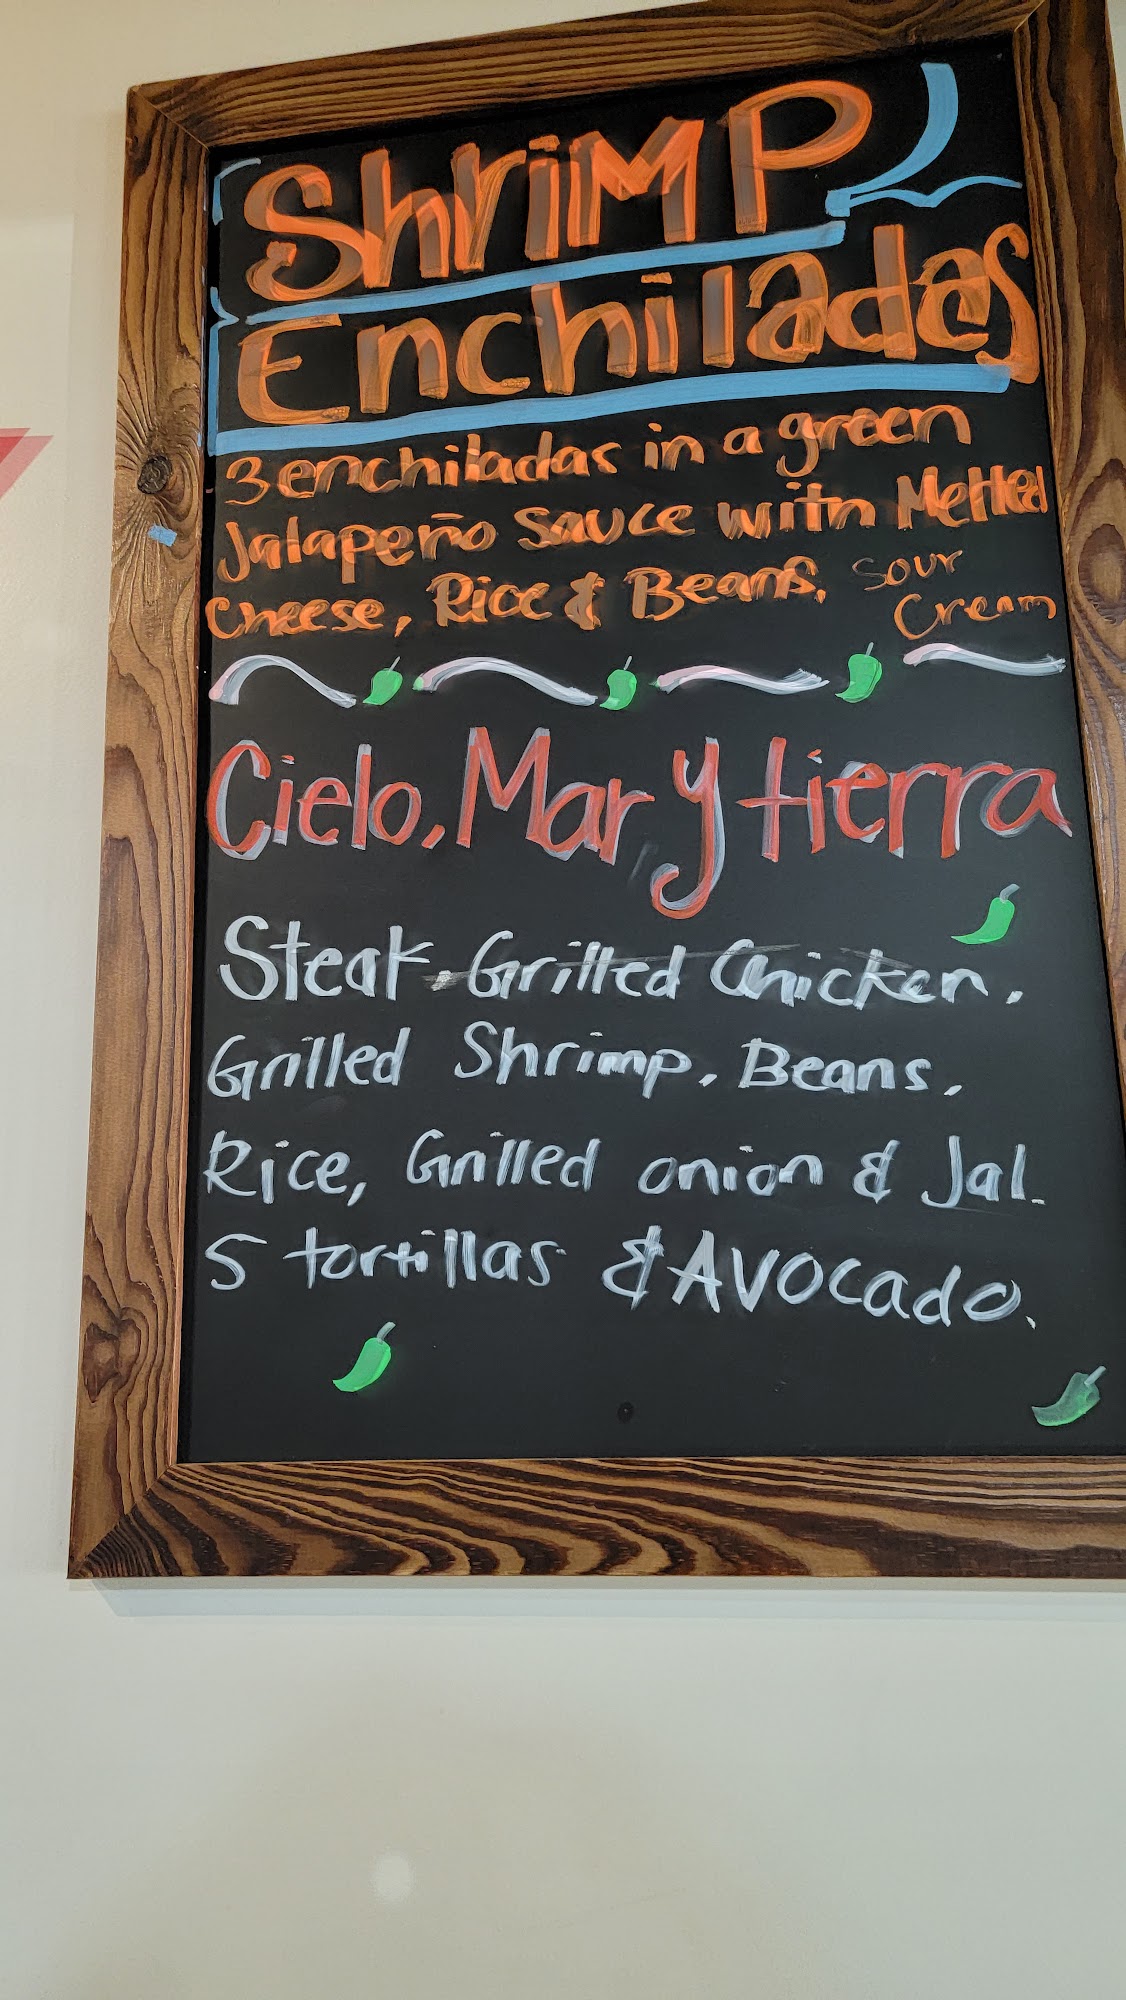 ShriMP
Enchiladas
3 enchiladas in a green
Jalapeño sauce with Melted
cheese, Rice & Beans, Sour
Cream
Cielo, Mar y tierra
Steak. Grilled Chicken,
Grilled Shrimp, Beans,
Rice, Grilled onion & Jal.
5 tortillas & AVOCado.